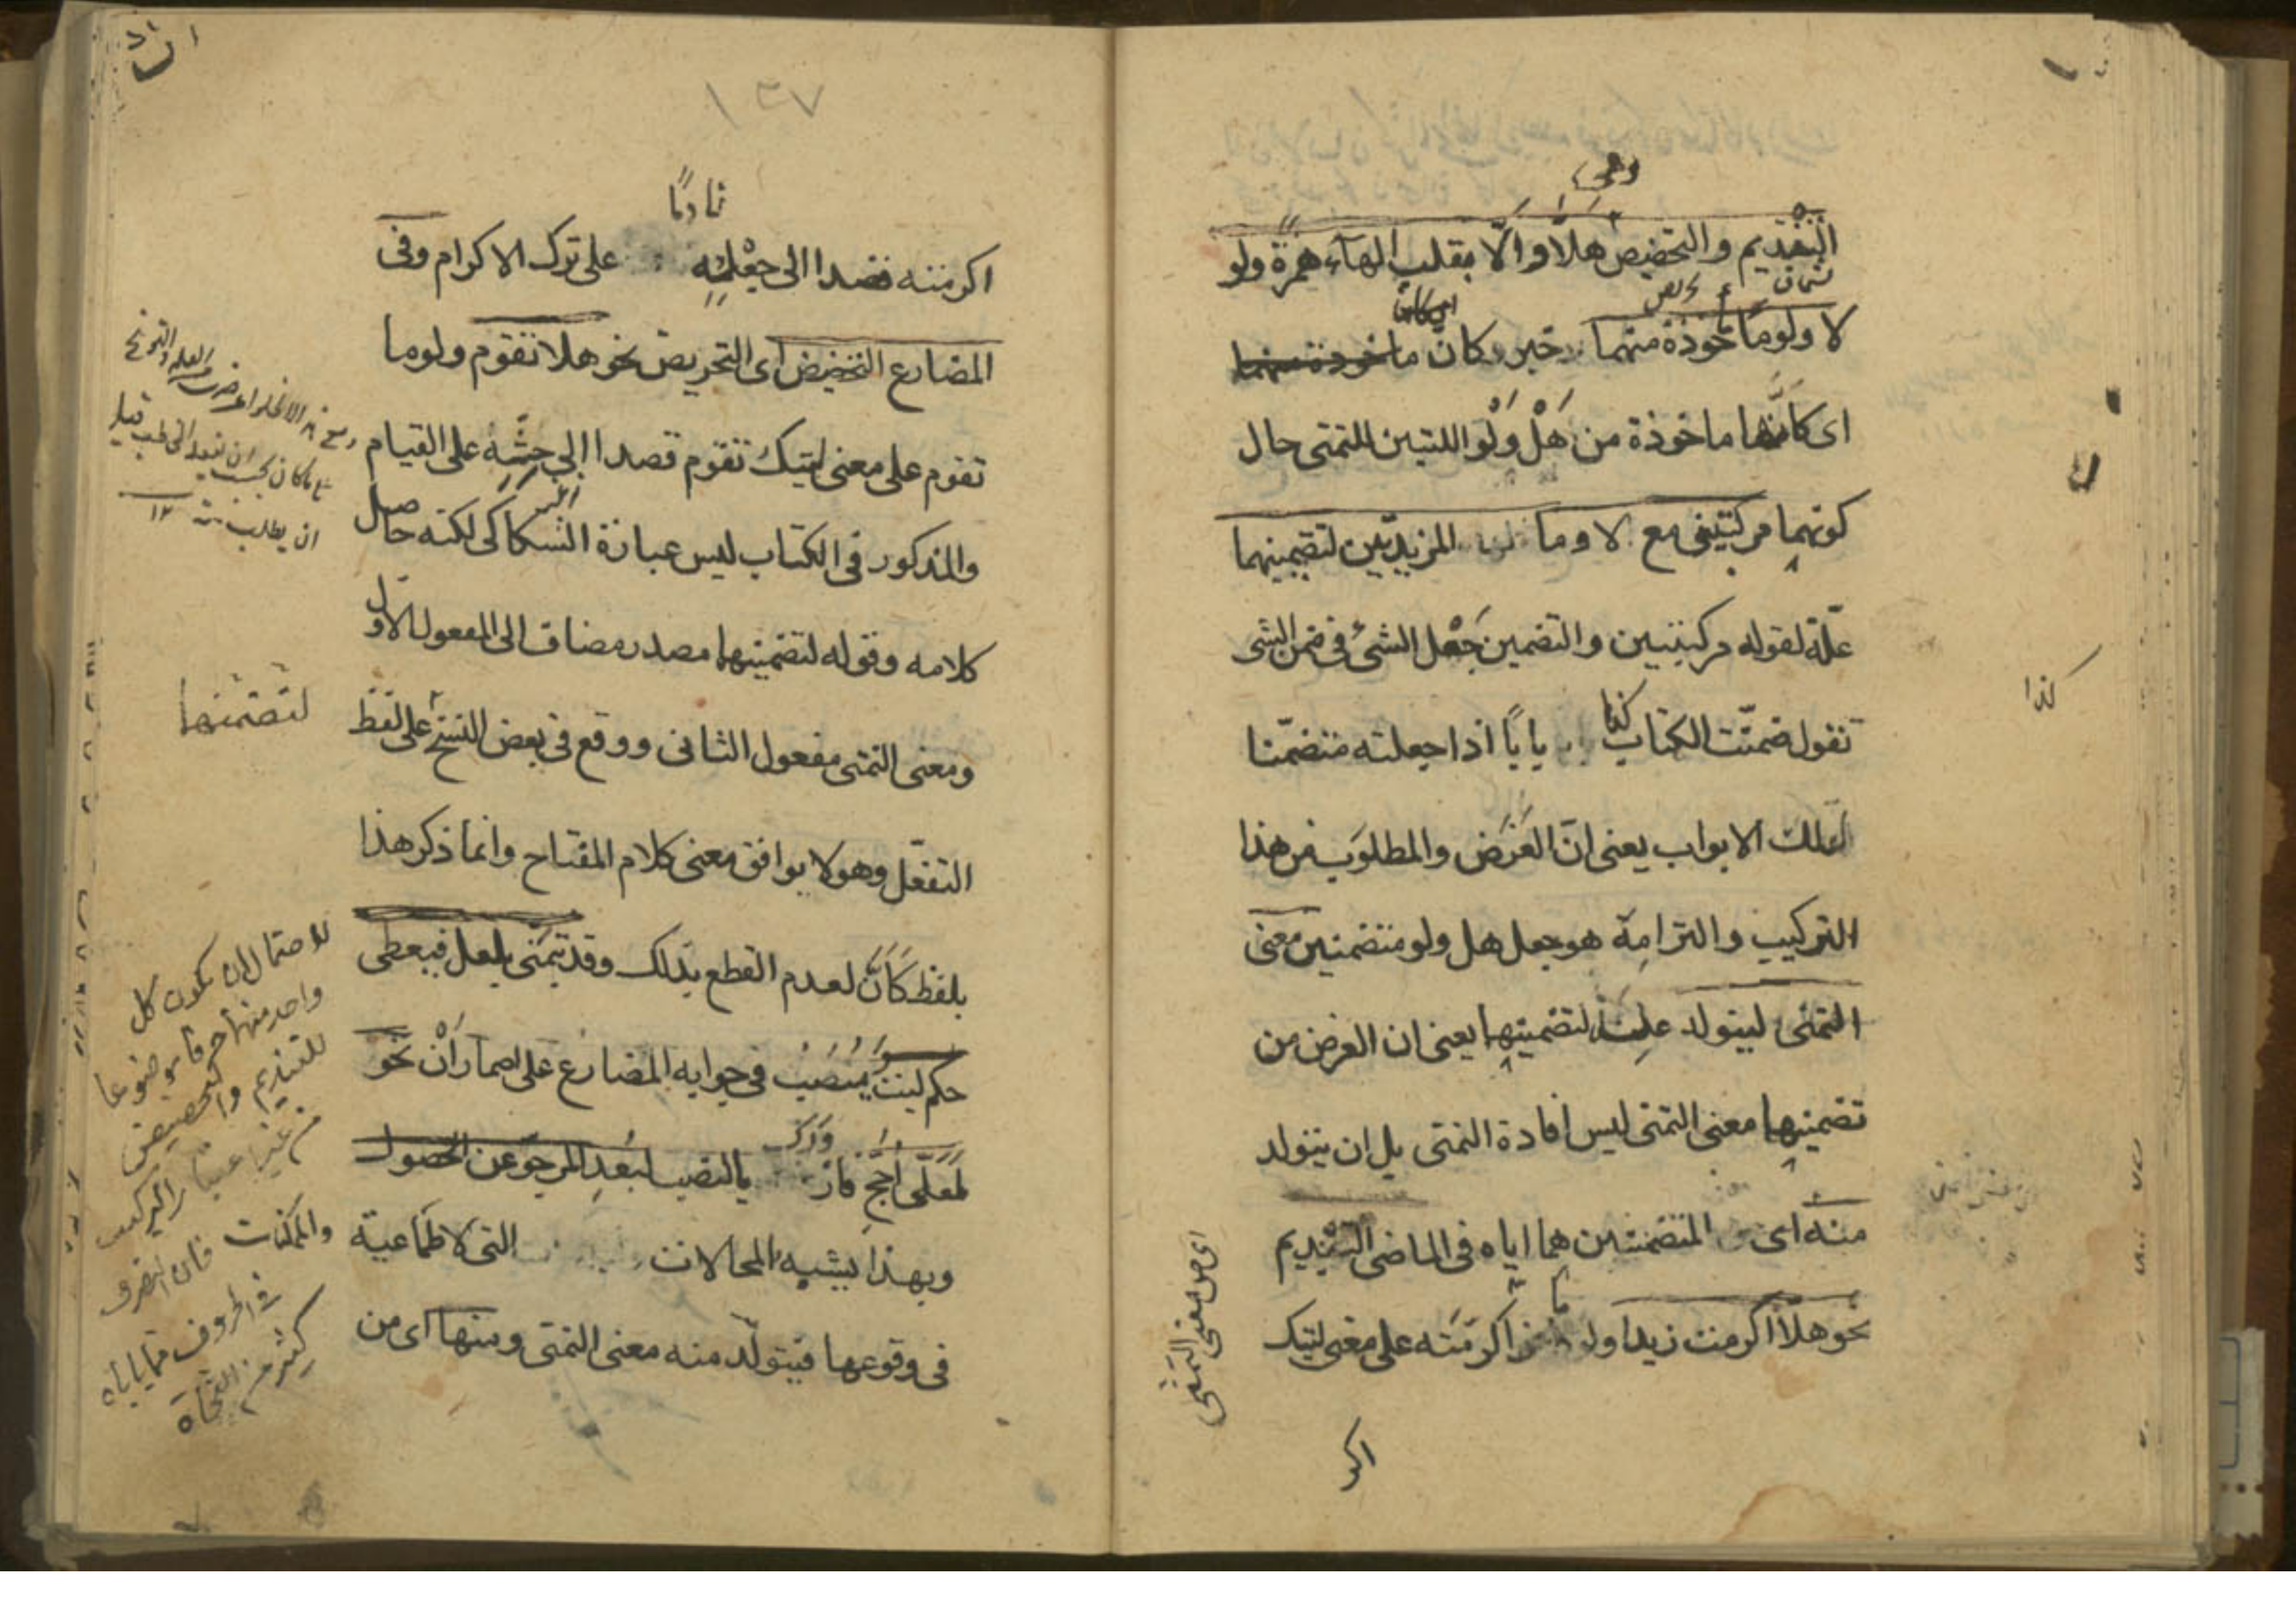 وهى
التنديم والتحضيض هلّا والّا بقلب الهاء همزة ولو
لا ولوما مأخوذة منهما خبر كان مأخوذة منهما
اى كأنّها ماخوذة من هَلْ وَلَوْ اللتين للتمنى حال
كونهما مركبتين مع لا وما المزيدتين لتضمينهما
علّة لقوله مركبتين والتضمين جَعْل الشئ فى ضمن الشى
تقول ضمّنت الكتاب كذا بابًا اذا جعلته متضمّنا
لتلك الابواب يعنى انّ الغَرَض والمطلوب من هذا
التركيب والتزامه هو جعل هل ولو متضمنين معنى
التمنى ليتولد علة لتضمينهما يعنى ان الغرض من
تضمينهما معنى التمنى ليس افادة التمنى بل ان يتولد
منه اى المتضمنين هما اياه فى الماضى التنديم
نحو هلّا اكرمت زيدا ولو ما اكرمته على معنى ليتك
اى من معنى التمنى
اكر
كذا
١٣٧
نادمًا
اكرمته قصدا الى جعله على ترك الاكرام وفى
المضارع التحضيض اى التحريض نحو هلا تقوم ولوما
تقوم على معنى ليتك تقوم قصدا الى حثّه على القيام
والمذكور فى الكتاب ليس عبارة السكاكى لكنه حاصل
كلامه وقوله لتضمينهما مصدر مضاف الى المفعول الاول
ومعنى التمنى مفعول الثانى ووقع فى بعض النسخ على لفظ
التفعّل وهو لا يوافق معنى كلام المفتاح وانما ذكر هذا
بلفظ كَأَنَّ لعدم القطع بذلك وقد يتمنّى بلعل فيعطى
حكم ليت وينصب فى جوابه المضارع على اضمار أَنْ نحو
لَعَلّى أَحُجّ فأزورك بالنصب لبُعد المرجوّ عن الحصول
وبهذا يشبه المحالات التى لا طماعية
فى وقوعها فيتولّد منه معنى التمنى ومنها اى من
ان يطلب منه ١٢
لتضمنهما
للاحتمال ان يكون كل
واحد منها حرفا موضوعا
للتنديم والتحضيض
من غير اعتبار التركيب
فان التصرف
فى الحروف مما ياباه
كثير من النحاة